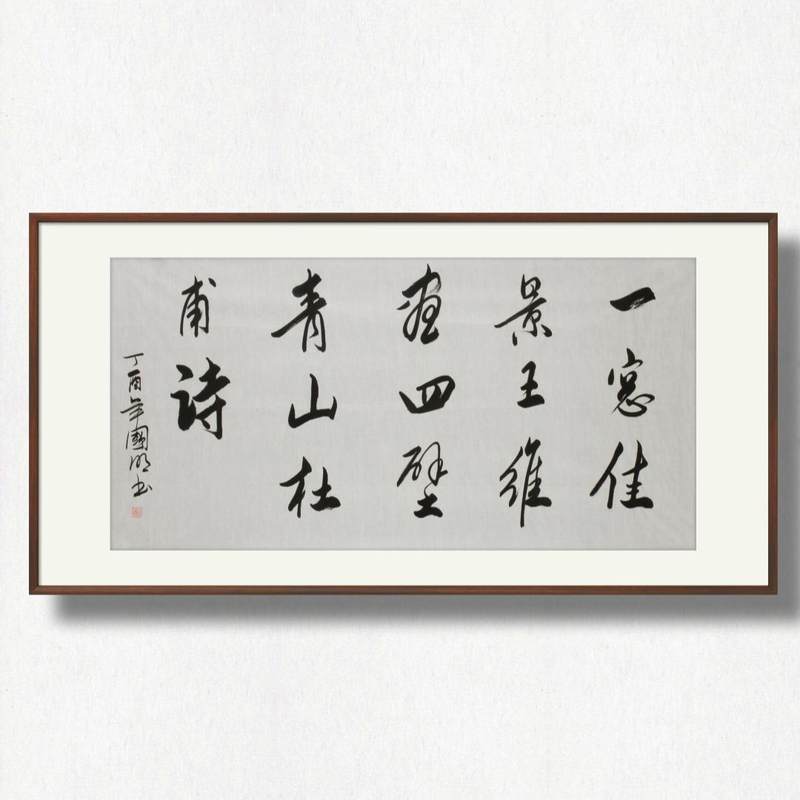 一窓佳
景王維
畫四壁
青山杜
甫詩
丁酉年國明书